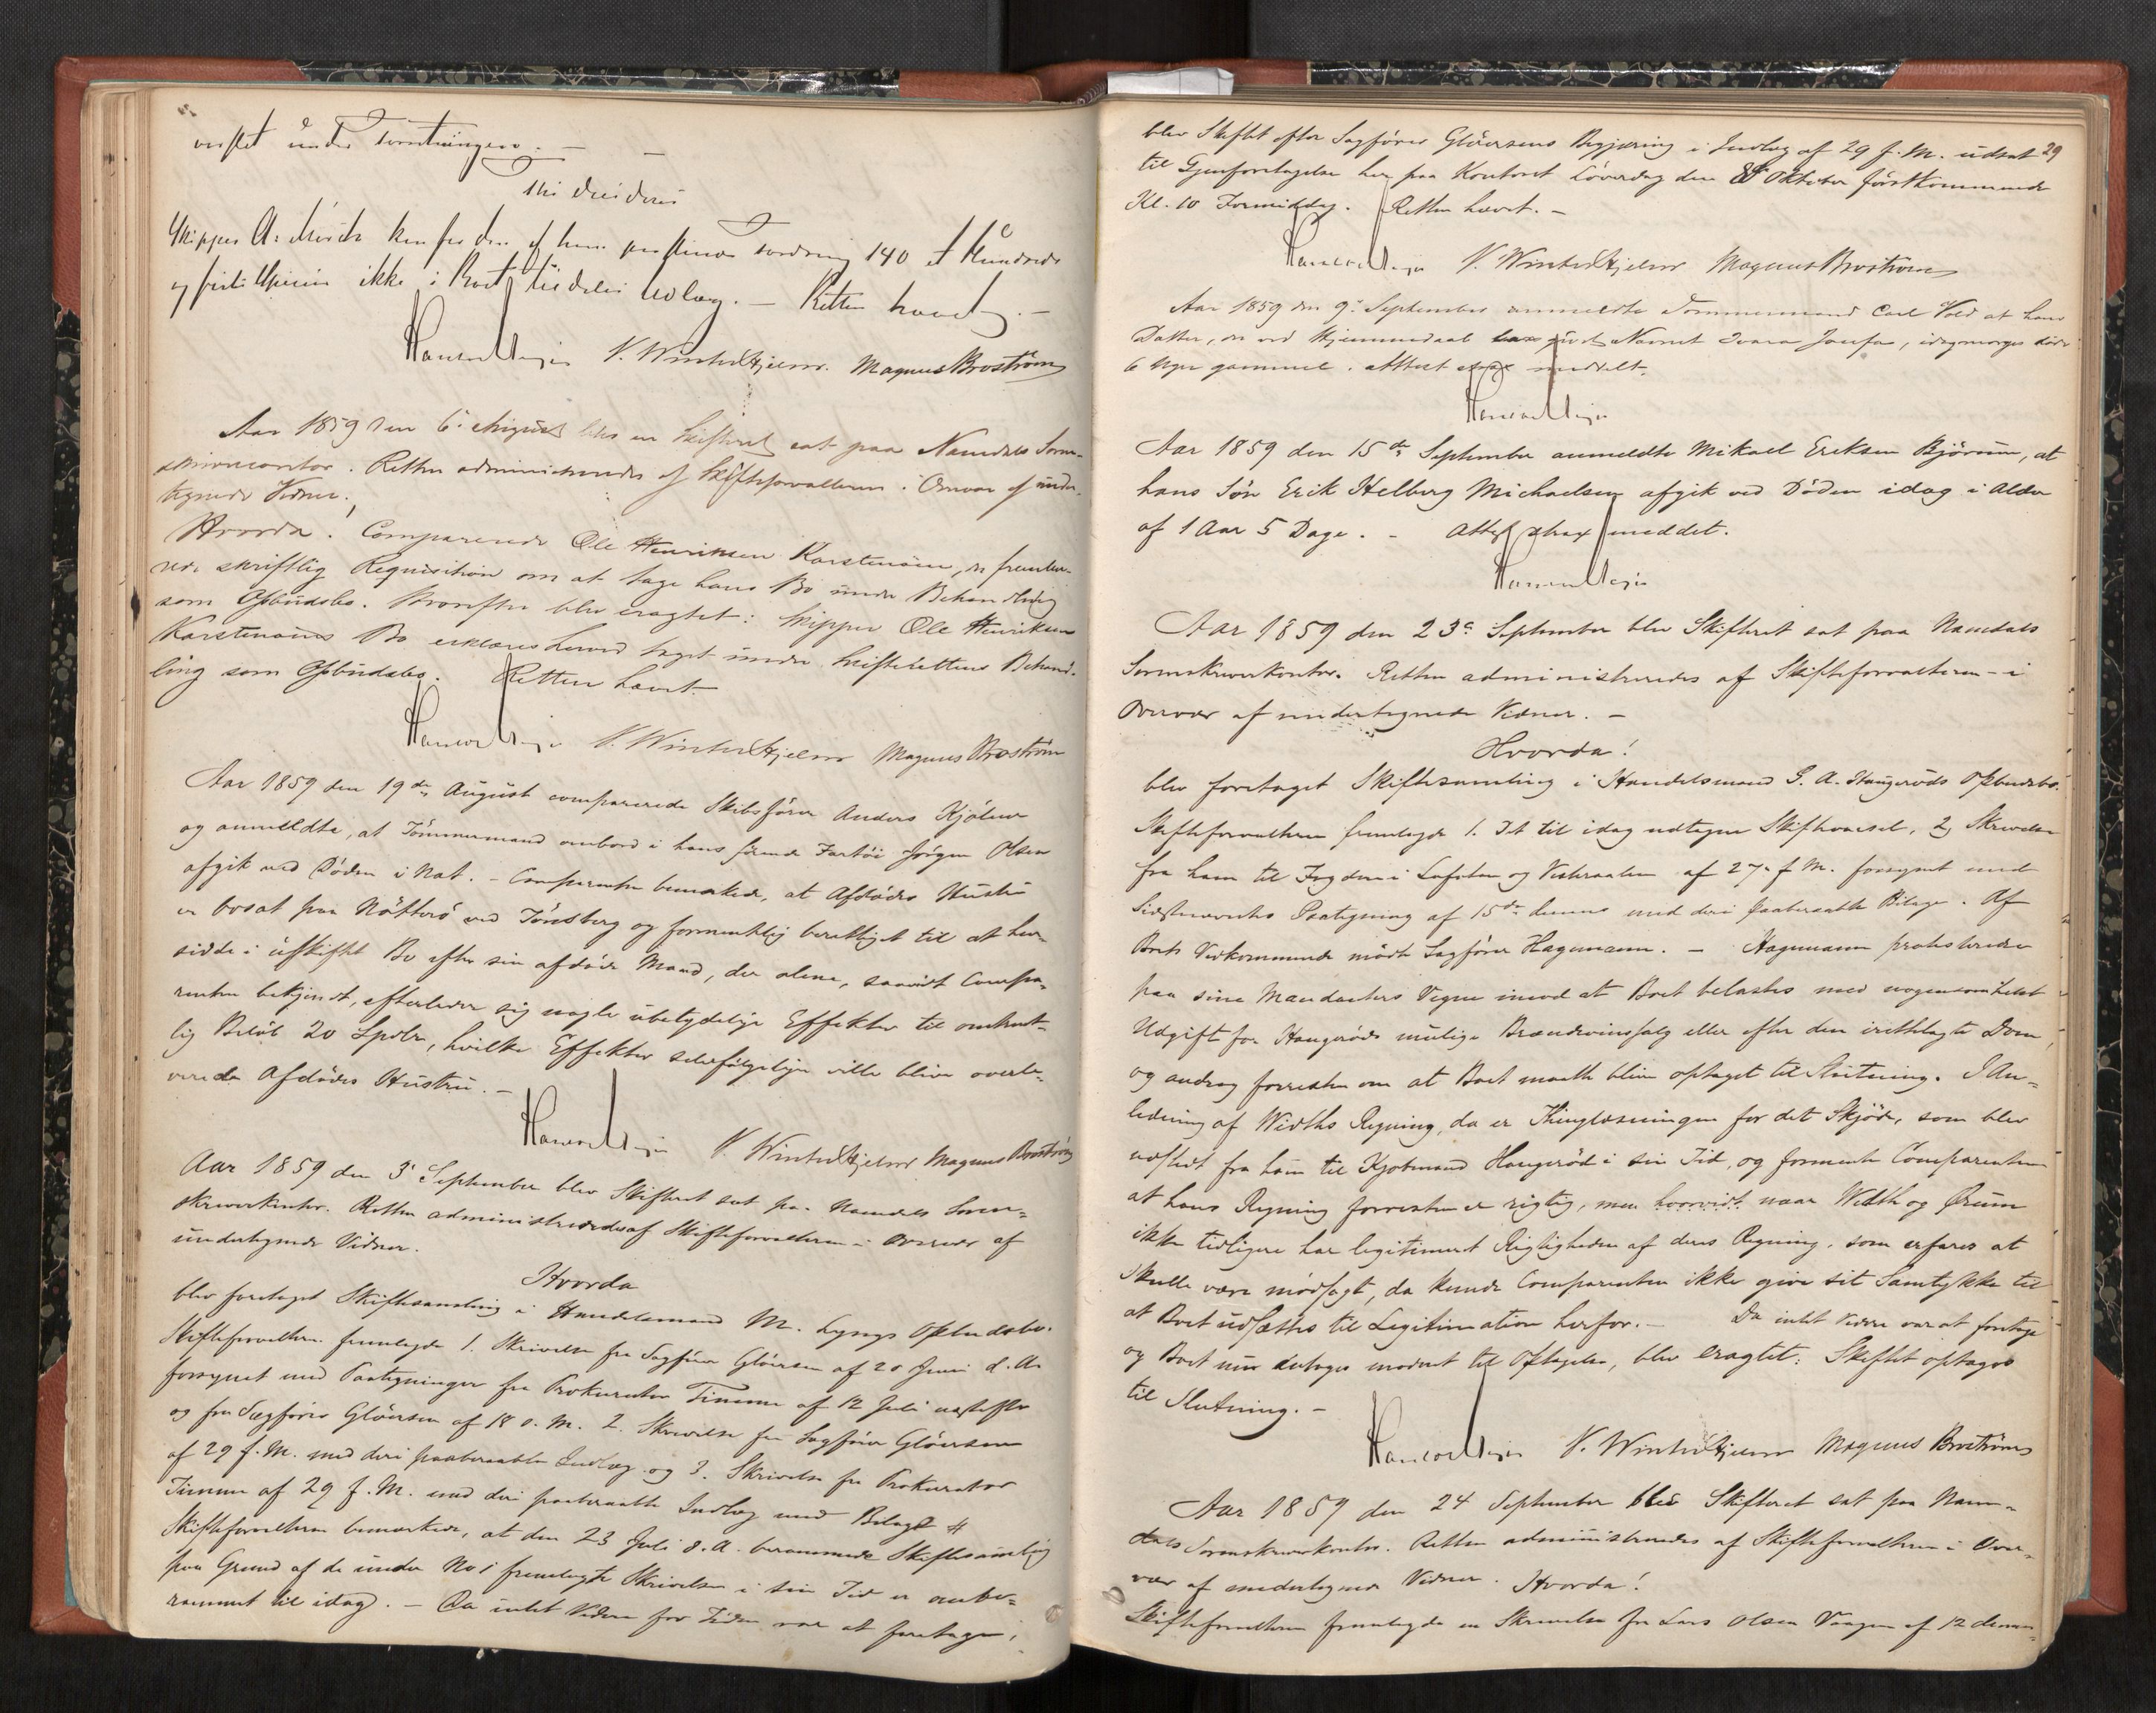 under Forretningen. —
Thi decideres
Skipper A. kan for den af ham Fordring 140 et Hundrede
og firti Specier ikke i Boet tildeles Udlæg. — Retten hævet. —
V. Winterhjelm. Magnus Broström
Aar 1859 den 6. August blev en Skifteret sat paa Namdals Soren-
skrivercontor. Retten administreredes af Skifteforvalteren i Overvær af under-
tegnede Vidner.
Hvorda! Comparerede Ole Henriksen Karstenøien, der fremlev-
skriftlig Requisition om at tage hans Bo under Behandling
som Opbudsbo. Hvorefter blev eragtet: Skipper Ole Henriksen
Karstenøiens Bo erklæres herved taget under Skifterettens Behand-
ling som Opbudsbo. Retten hævet.
V. Winterhjelm Magnus Broström
Aar 1859 den 19de August comparerede Skibsfører Anders Kjølner
og anmeldte, at Tømmermand ombord i hans førende Fartøi Jørgen Olsen
afgik ved Døden i Nat. — Comparenten bemærkede, at Afdødes Hustru
er bosat paa Nøtterø ved Tønsberg og formentlig berettiget til at hen-
sidde i uskiftet Bo efter sin afdøde Mand, der alene, saavidt Compa-
renten bekjendt, efterlader sig nogle ubetydelige Effekter til omtrent-
lig Beløb 20 Spdlr, hvilke Effekter selvfølgelig ville blive overle-
verede Afdødes Hustru. —
V. Winterhjelm Magnus Broström
Aar 1859 den 3 September blev Skifteret sat paa Namdals Soren-
skriverkontor. Retten administreredes af Skifteforvalteren i Overvær af
undertegnede Vidner.
Hvorda
blev foretaget Skiftesamling i Handelsmand M. Lyngs Opbudsbo.
Skifteforvalteren fremlagde 1. Skrivelse fra Sagfører Gløersen af 20 Juni d. A.
forsynet med Paategninger fra Prokurator Timme af 12 Juli næstefter
og fra Sagfører Gløersen af 18 s. M. 2. Skrivelse fra Sagfører Gløersen
af 29 f. M. med deri paaberaabte Indlæg og 3. Skrivelse fra Prokurator
Timme af 29 f. M. med deri paaberaabte Indlæg med Bilag
Skifteforvalteren bemærkede, at den 23 Juli d. A. berammede Skiftesamling
paa Grund af de under No 1 fremlagte Skrivelser i sin Tid er ombe-
rammet til idag. — Da intet Videre for Tiden var at foretage,
29
blev Skiftet efter Sagfører Gløersens Begjæring i Indlæg af 29 f. M. udsat
til Gjenforetagelse her paa Kontoret Løverdag den 8de Oktober førstkommende
Kl. 10 Formiddag. Retten hævet. —
V. Winterhjelm Magnus Broström
Aar 1859 den 9. September anmeldte Tømmermand Carl Vold at hans
Datter, der ved Hjemmedaab var givet Navnet Ivara Josefa, idagmorges døde
6 Uger gammel. Attest strax meddelt.
Aar 1859 den 15de September anmeldte Mikael Eriksen Bjørum, at
hans Søn Erik Helberg Michaelsen afgik ved Døden idag i Alder
af 1 Aar 5 Dage. — Attest strax meddelt.
Aar 1859 den 23. September blev Skifteret sat paa Namdals
Sorenskriverkontor. Retten administreredes af Skifteforvalteren — i
Overvær af undertegnede Vidner. —
Hvorda!
blev foretaget Skiftesamling i Handelsmand G. A. Haugerøds Opbudsbo.
Skifteforvalteren fremlagde 1. Det til idag udtagne Skiftevarsel, 2, Skrivelse
fra ham til Fogden i Lofoten og Vesteraalen af 27. f. M. forsynet med
Sidstnævntes Paategning af 15de dennes med deri paaberaabte Bilage. Af
Boets Vedkommende mødte Sagfører Hagemann. — Hagemann protesterede
paa sine Mandanters Vegne imod at Boet belastes med nogensomhelst
Udgift for Haugerøds mulige Brændevinssalg eller efter den irettelagte Dom,
og androg forresten om at Boet maatte blive optaget til Slutning. I An-
ledning af Widths Regning, da er Thinglæsningen for det Skjøde, som blev
udstedt fra ham til Kjøbmand Haugerød i sin Tid, og formente Comparenten
at hans Regning forresten er rigtig, men hvorvidt naar Width og Ørum
ikke tidligere har legitimeret Rigtigheden af deres Regning, som erfares at
skulle være modsagt, da kunde Comparenten ikke give sit Samtykke til
at Boet udsættes til Legitimation herfor. — Da intet Videre var at foretage
og Boet nu antages modent til Optagelse, blev eragtet: Skiftet optages
til Slutning. —
V. Winterhjelm Magnus Broström
Aar 1859 den 24 September blev Skifteret sat paa Nam-
dals Sorenskriverkontor. Retten administreredes af Skifteforvalteren i Over-
vær af undertegnede Vidner. Hvorda!
Skifteforvalteren fremlagde en Skrivelse fra Lars Olsen Vaagen af 12 dennes